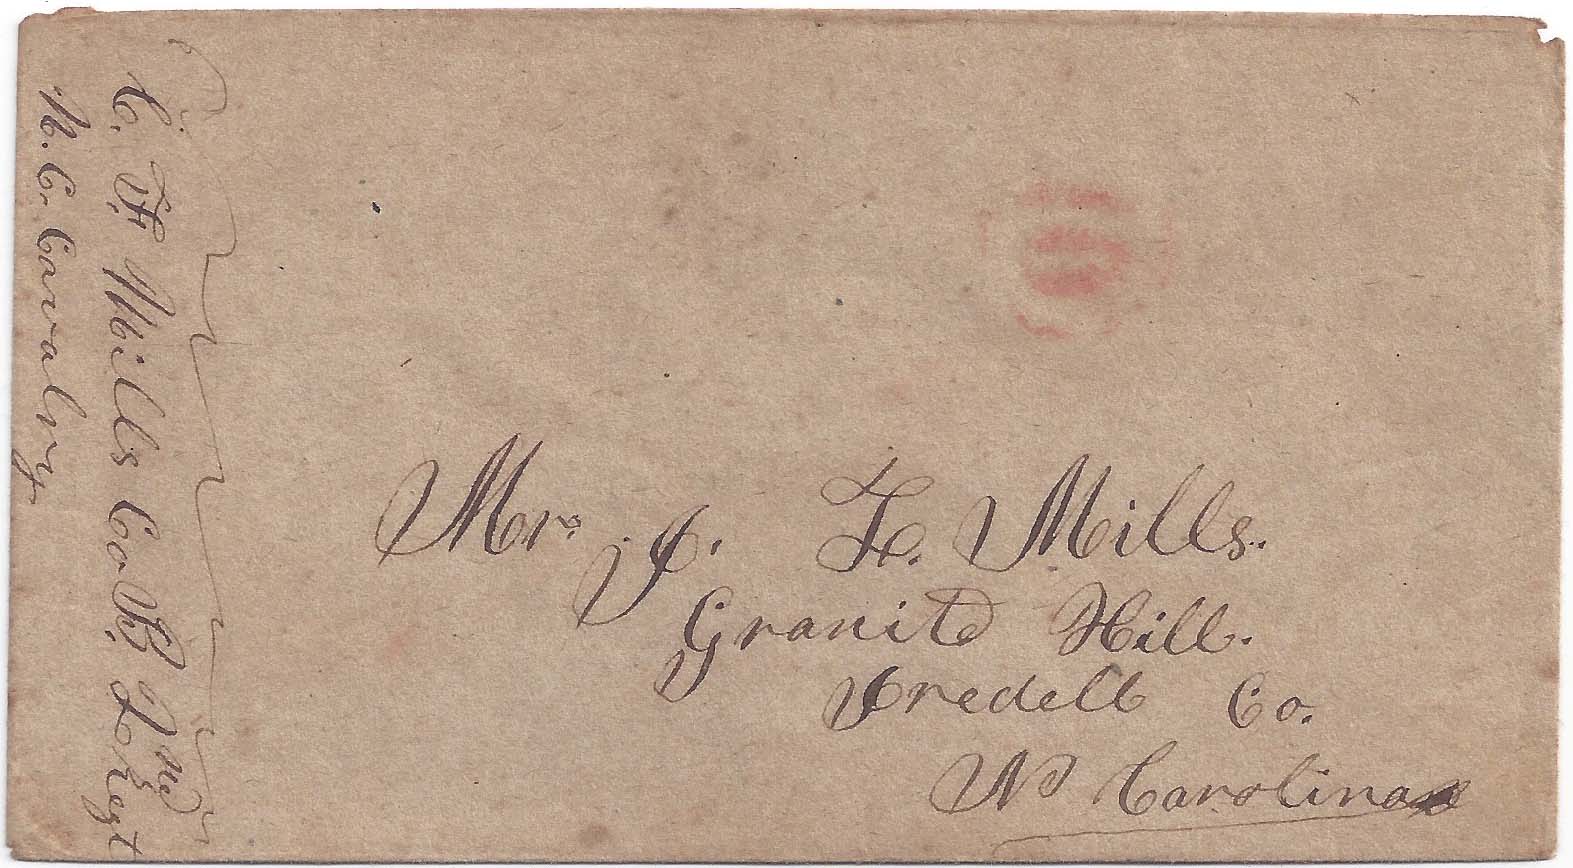 C. F. Mills Co. B 2nd Regt
N. C. Cavalry
Mr. J. F. Mills.
Granit Hill.
Iredell Co.
N Carolina